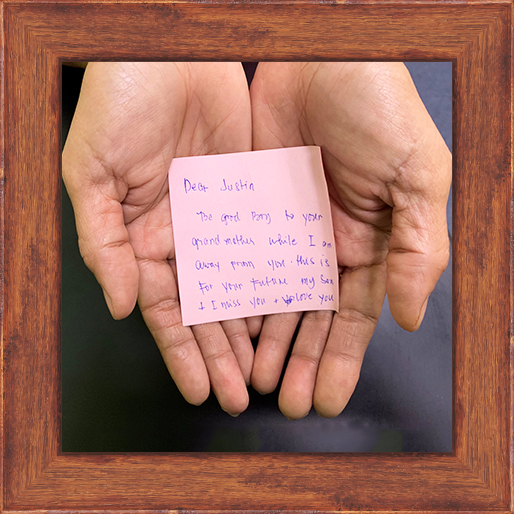 Dear Justin
Be good Boy to your
grandmother while I am
away from you. this is
For your future my Son
+ I miss you + love you